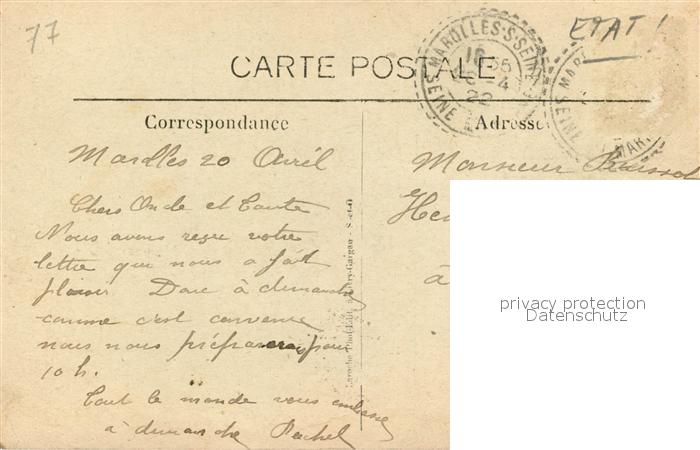 77
ETAT !
CARTE POSTALE
MAROLLES-S-SEINE
16 35
-4
22
SEINE
MAR
SEINE
MAR
Correspondance
Adresse
Marolles 20 Avril
Monsieur
Chers Oncle et Tante
Nous avons reçu votre
lettre qui nous a fait
plaisir Donc à dimanche
comme c'est convenu
nous nous préparerons pour
10 h.
Tout le monde vous embrasse
à dimanche Rachel
à
privacy protection
Datenschutz